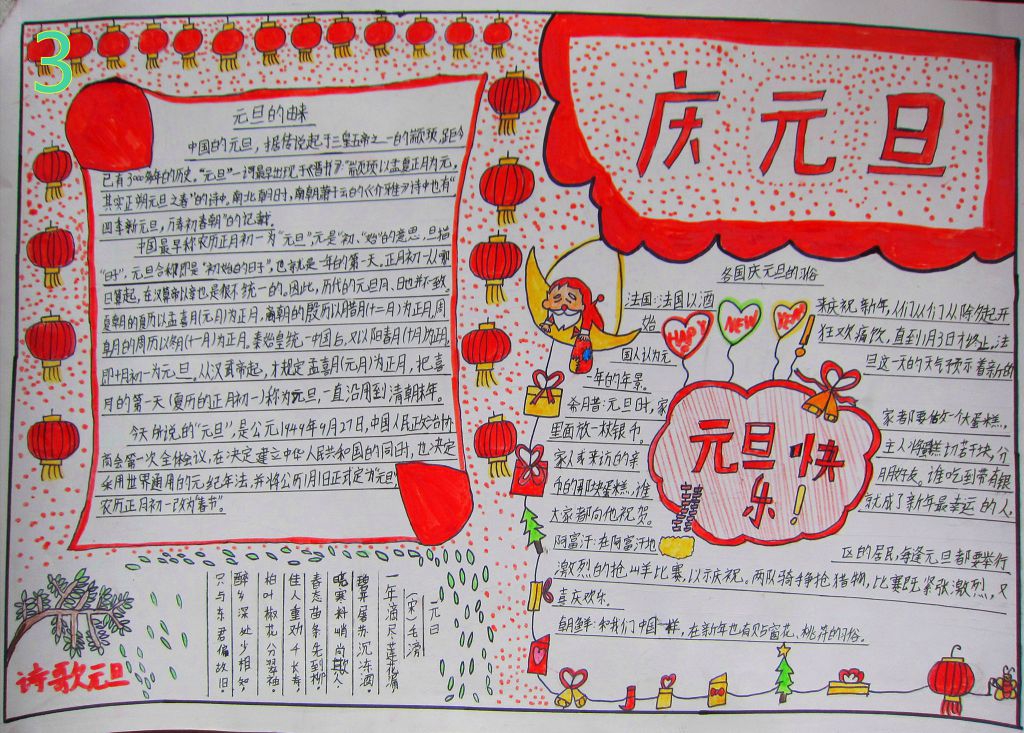 3
庆元旦
元旦的由来
中国的元旦，据传说起于三皇五帝之一的颛顼，距今
已有3000多年的历史。"元旦"一词最早出现于《晋书》："颛顼以孟夏正月为元，
其实正朔元旦之春"的诗中。南北朝时，南朝萧子云的《介雅》诗中也有"
四季新元旦，万寿初春朝"的记载。
中国最早称农历正月初一为"元旦"，元是"初"、"始"的意思，旦指
"日子"，元旦合称即是"初始的日子"，也就是一年的第一天。正月初一从哪
日算起，在汉武帝以前也是很不统一的。因此，历代的元旦月、日也并不一致
夏朝的夏历以孟喜月(元月)为正月，商朝的殷历以腊月(十二月)为正月，周
朝的周历以冬月(十一月)为正月。秦始皇统一中国后，又以阳喜月(十月)为正月，
即十月初一为元旦。从汉武帝起，才规定孟喜月(元月)为正月，把喜
月的第一天(夏历的正月初一)称为元旦，一直沿用到清朝末年。
今天所说的"元旦"，是公元1949年9月27日，中国人民政治协
商会第一次全体会议，在决定建立中华人民共和国的同时，也决定
采用世界通用的元纪年法，并将公历1月1日正式定为"元旦"
农历正月初一改为"春节"。
各国庆元旦的习俗
法国：法国以酒
来庆祝新年，人们从
除夕起开
始
狂欢痛饮，直到1月3日才终止，法
国人认为元
旦这一天的天气预示着新的
一年的年景。
希月昔：元旦时，家
家都要做一个大蛋糕，
里面放一枚银币。
主人将蛋糕切若干块，分
家人或来访的亲
朋好友。谁吃到带有银
币的那块蛋糕，谁
就成了新年最幸运的人，
大家都向他祝贺。
阿富汗：在阿富汗北
区的居民，每逢元旦都要举行
激烈的抢山羊比赛，以示庆祝。两队骑手争抢猎物，比赛既紧张激烈，又
喜庆欢乐。
朝鲜：和我们中国一样，在新年也有贴窗花、桃符的习俗。
HAPPY
NEW
YEAR
元旦快
乐！
一元日
(宋)毛滂
一年滴尽莲花漏
碧井屠苏沉冻酒。
晓寒料峭尚欺人，
春态苗条先到柳。
佳人重劝千长寿，
柏叶椒花分翠袖。
醉乡深处少相知，
只与东君偏故旧。
诗歌元旦